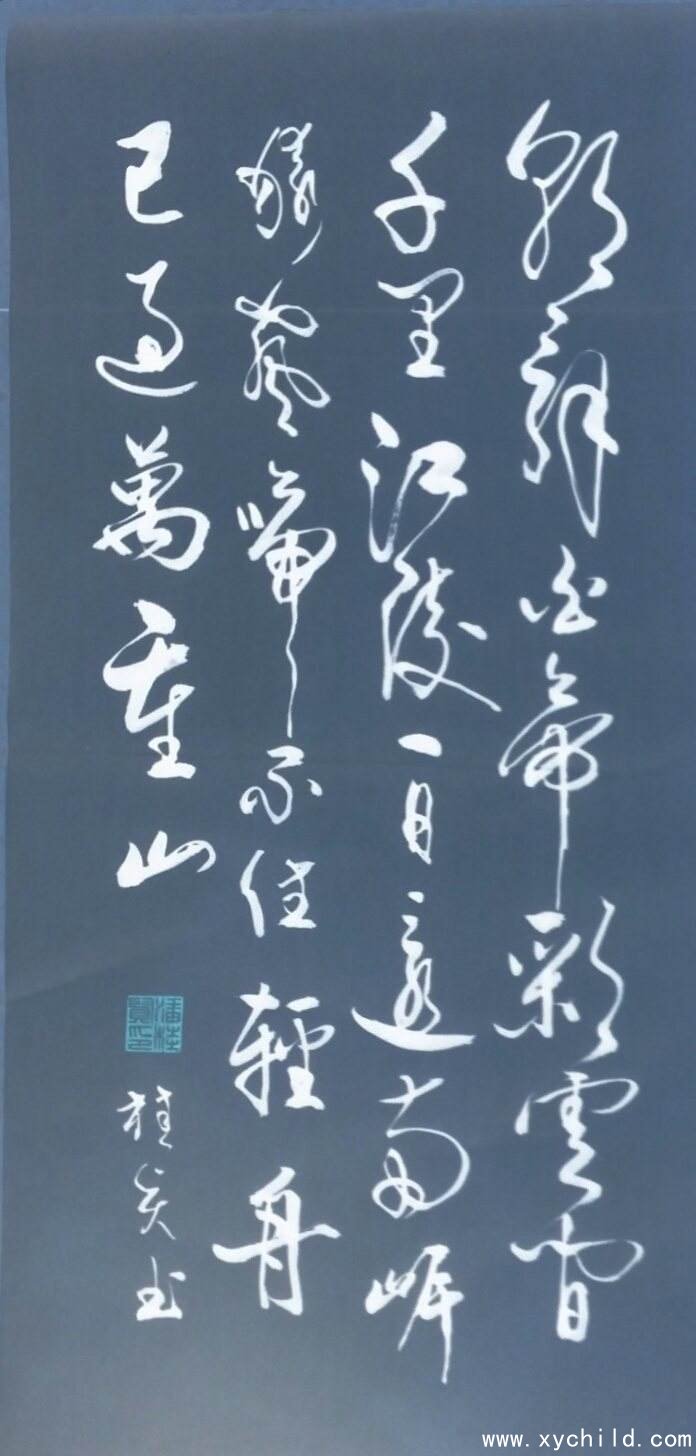 朝辭白帝彩雲間
千里江陵一日還兩岸
猿聲啼不住輕舟
已過萬重山
桂书
www.xychild.com